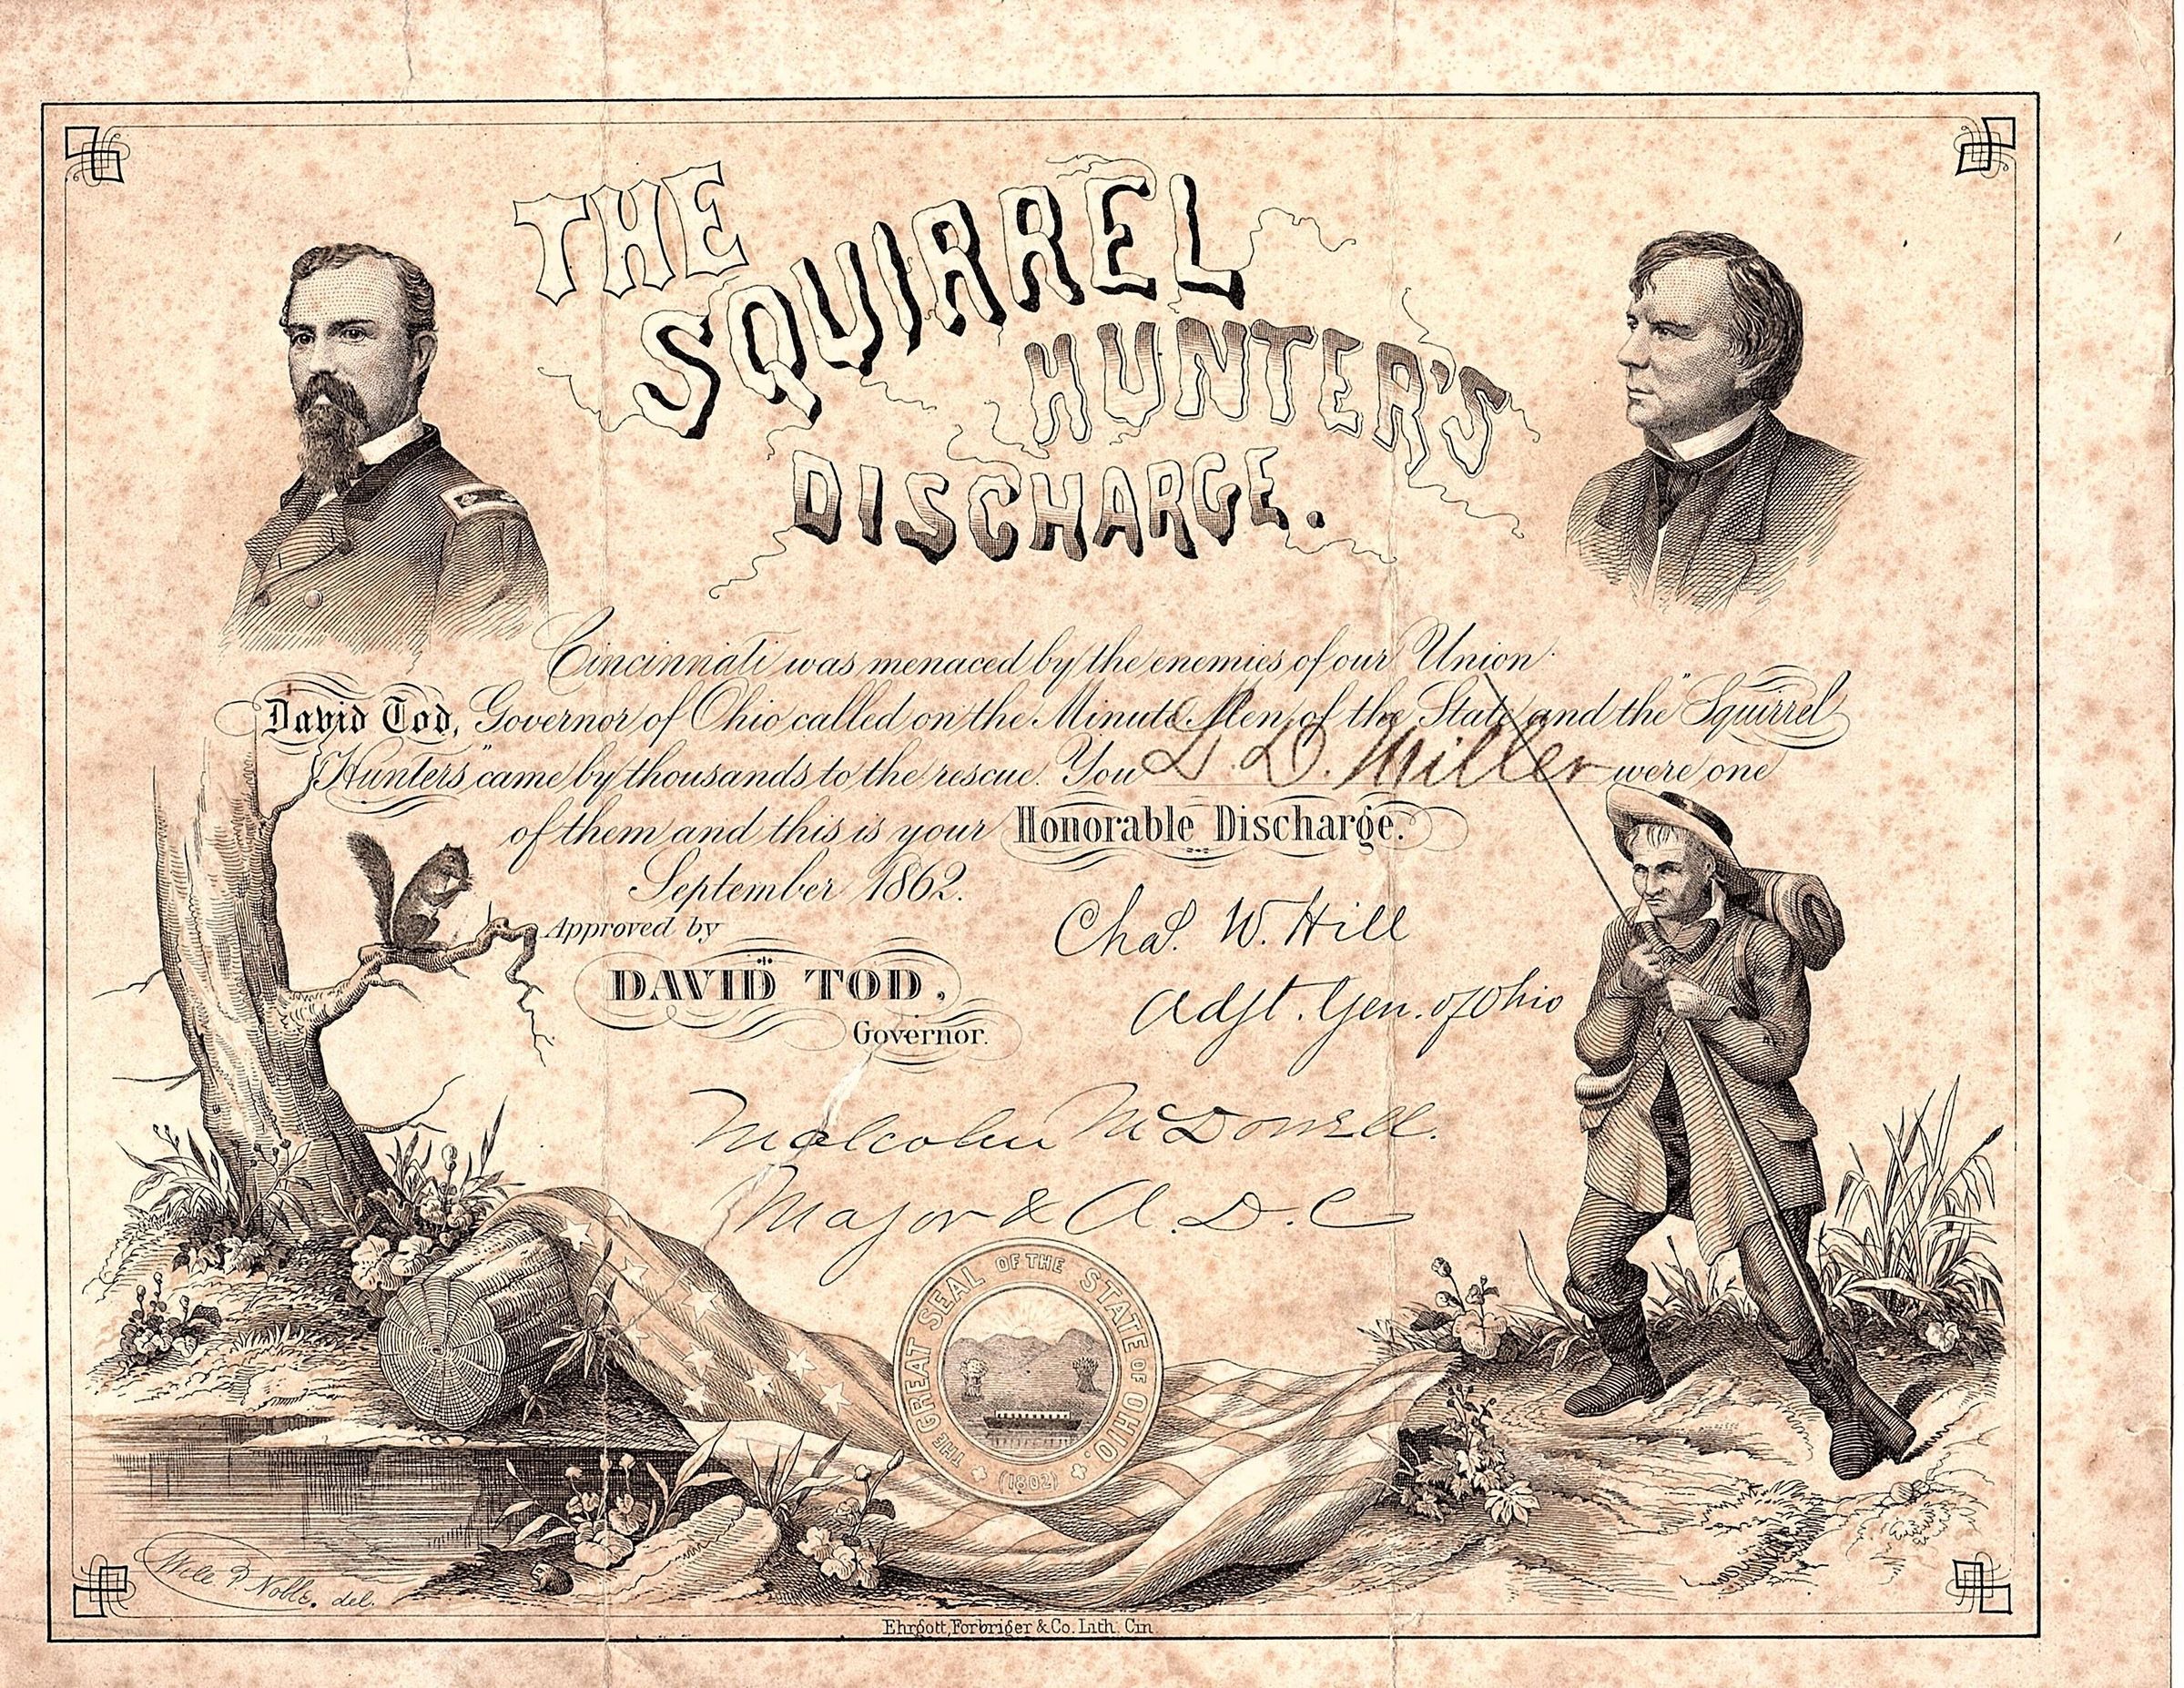 THE
SQUIRREL
HUNTER'S
DISCHARGE.
Cincinnati was menaced by the enemies of our Union
David Tod, Governor of Ohio called on the Minute Men of the State and the "Squirrel
Hunters" came by thousands to the rescue. You L. D. Miller were one
of them and this is your Honorable Discharge.
September 1862.
Approved by
DAVID TOD,
Governor.
Chas. W. Hill
Adjt. Gen. of Ohio
Malcolm McDowell.
Major & A. D. C
THE GREAT SEAL OF THE STATE OF OHIO.
(1802)
Noble. del.
Ehrgott, Forbriger & Co. Lith. Cin